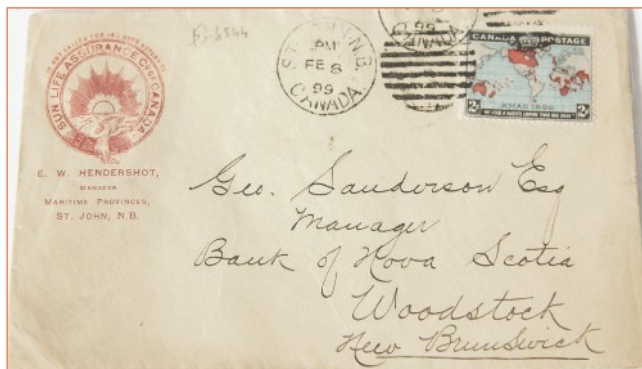 IF NOT CALLED FOR IN 10 DAYS RETURN TO
SUN LIFE ASSURANCE CO OF CANADA
E. W. HENDERSHOT,
MANAGER
MARITIME PROVINCES,
ST. JOHN, N.B.
ST. JOHN, N.B.
PM
FE 8
99
CANADA
99
CANADA
CANADA POSTAGE
XMAS 1898
2 2
WE HOLD A VASTER EMPIRE THAN HAS BEEN
Geo. Sanderson Esq
Manager
Bank of Nova Scotia
Woodstock
New Brunswick